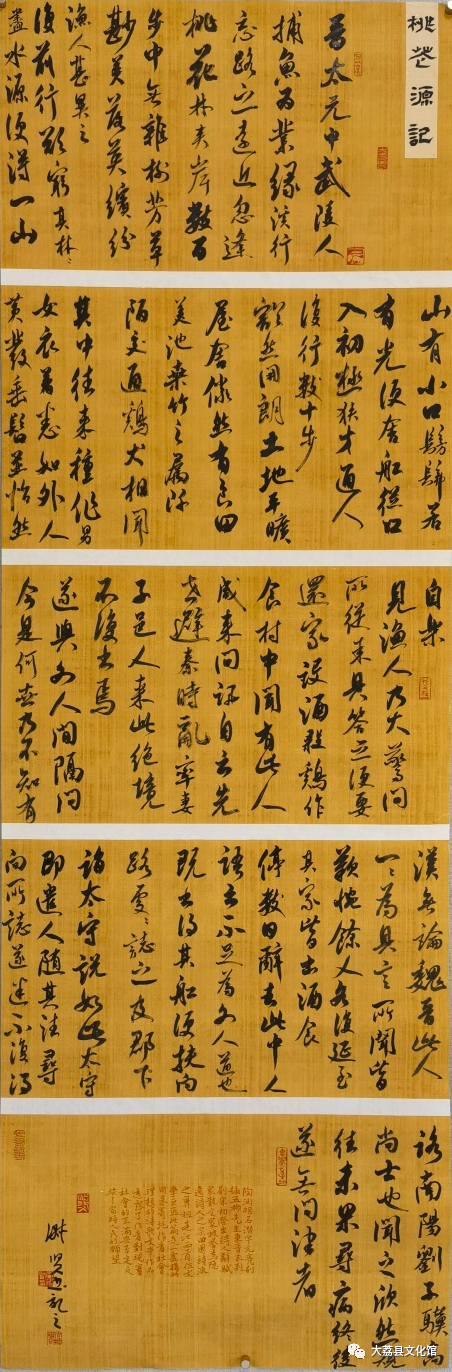 桃花源記
晉太元中武陵人
捕魚為業緣溪行
忘路之遠近忽逢
桃花林夾岸數百
步中無雜樹芳草
尠美落英繽紛
漁人甚異之
復前行欲窮其林々
盡水源便得一山
山有小口髣髴若
有光便舍船從口
入初極狹才通人
復行數十步
豁然開朗土地平曠
屋舍儼然有良田
美池桑竹之屬阡
陌交通鷄犬相聞
其中往來種作男
女衣著悉如外人
黃髮垂髫並怡然
自樂
見漁人乃大驚問
所從來具答之便要
還家設酒殺鷄作
食村中聞有此人
咸來問訊自云先
世避秦時亂率妻
子邑人來此絕境
不復出焉
遂與外人間隔問
今是何世乃不知有
漢無論魏晉此人
一一為具言所聞皆
歎惋餘人各復延至
其家皆出酒食
停數日辭去此中人
語云不足為外人道也
既出得其船便扶向
路處々誌之及郡下
詣太守說如此太守
即遣人隨其往尋
向所誌遂迷不復得
路南陽劉子驥高
尚士也聞之欣然規
往未果尋病終後
遂無問津者
陶淵明名潛字元亮別
大荔县文化馆